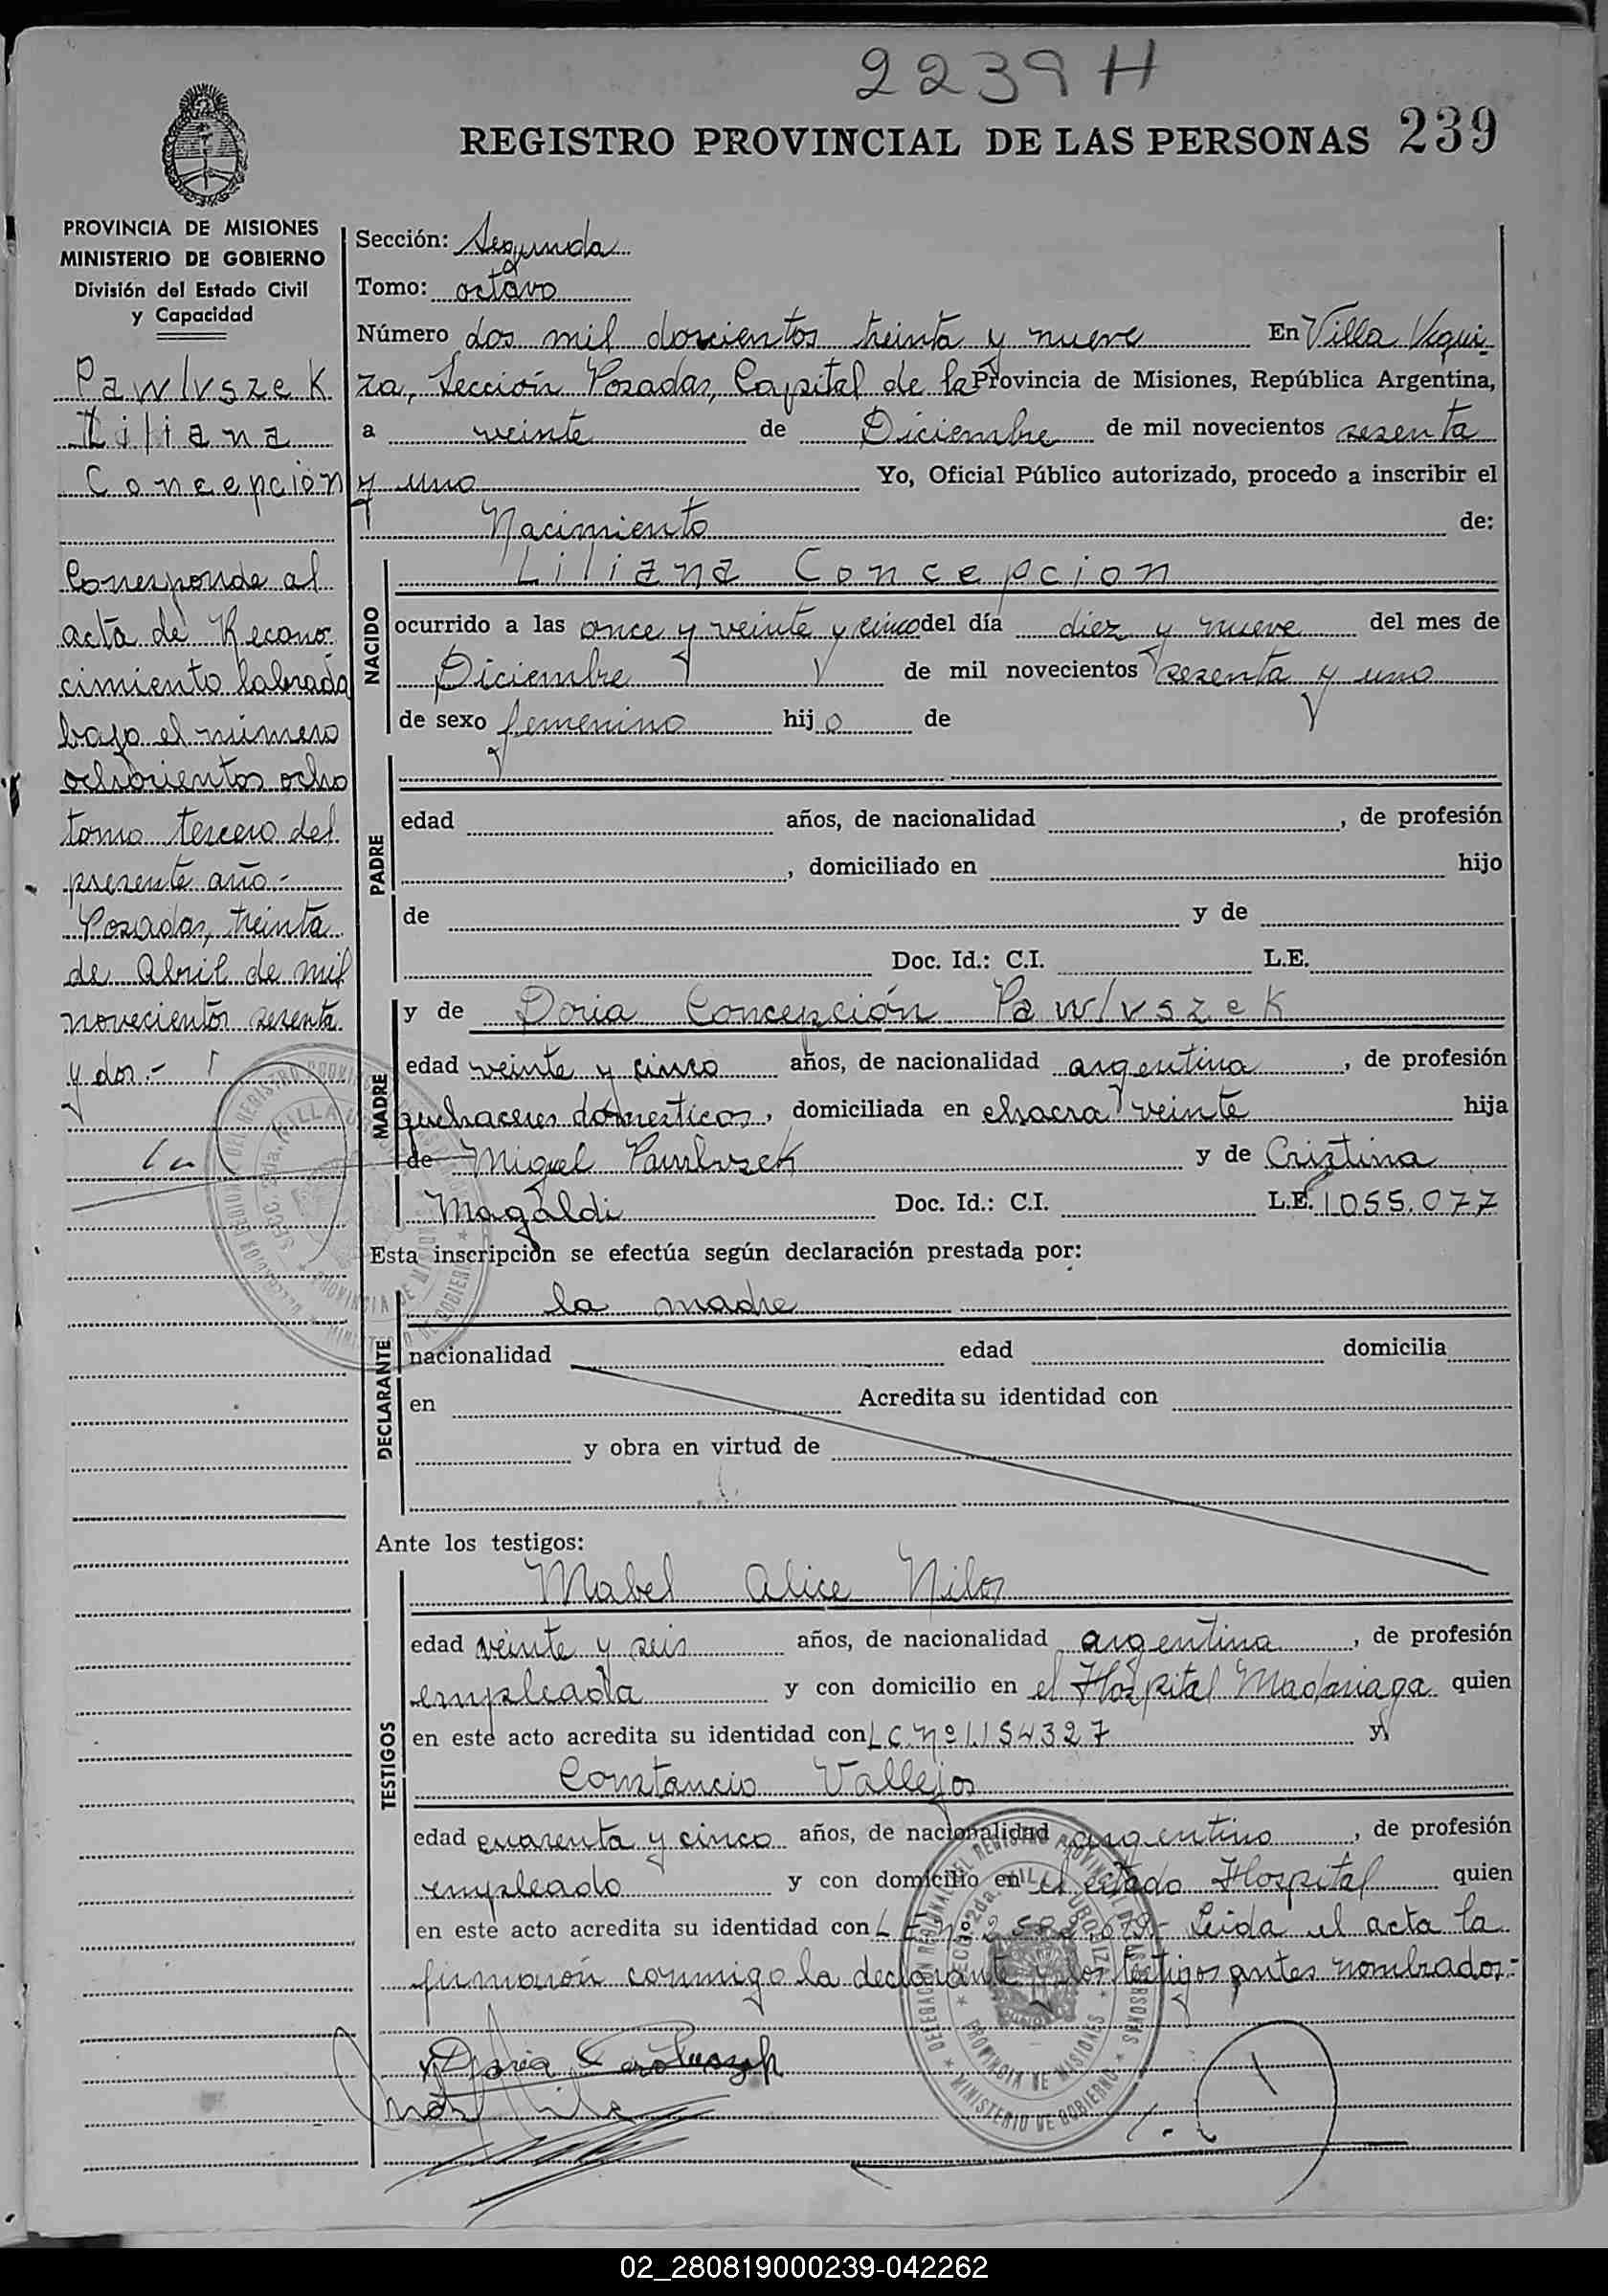 2239 H
REGISTRO PROVINCIAL DE LAS PERSONAS 239
PROVINCIA DE MISIONES
MINISTERIO DE GOBIERNO
División del Estado Civil
y Capacidad
Pawlvszek
Liliana
Concepción
Corresponde al
acta de Recono-
cimiento labrada
bajo el número
ochocientos ocho
tomo tercero del
presente año.-
Posadas, treinta
de Abril de mil
novecientos sesenta
y dos.-
Sección: Segunda
Tomo: octavo
Número dos mil doscientos treinta y nueve En Villa Urqui-
za, Sección Posadas, Capital de la Provincia de Misiones, República Argentina,
a veinte de Diciembre de mil novecientos sesenta
y uno Yo, Oficial Público autorizado, procedo a inscribir el
Nacimiento de:
NACIDO
Liliana Concepcion
ocurrido a las once y veinte y cinco del día diez y nueve del mes de
Diciembre de mil novecientos sesenta y uno
de sexo femenino hijo de
PADRE
edad años, de nacionalidad , de profesión
, domiciliado en hijo
de y de
Doc. Id.: C.I. L.E.
MADRE
y de Doria Concepción Pawlvszek
edad veinte y cinco años, de nacionalidad argentina, de profesión
quehaceres domesticos, domiciliada en chacra veinte hija
de Miguel Pawlvszek y de Cristina
Magaldi Doc. Id.: C.I. L.E. 1055.077
Esta inscripción se efectúa según declaración prestada por:
DECLARANTE
la madre
nacionalidad edad domicilia
en Acredita su identidad con
y obra en virtud de
Ante los testigos:
TESTIGOS
Mabel Alice Nilos
edad veinte y seis años, de nacionalidad argentina, de profesión
empleada y con domicilio en el Hospital Madariaga quien
en este acto acredita su identidad con L C Nº 1.154327 y
Constancio Vallejos
edad cuarenta y cinco años, de nacionalidad argentino, de profesión
empleado y con domicilio en el citado Hospital quien
en este acto acredita su identidad con L E Nº Leida el acta la
firmaron conmigo la declarante y los testigos antes nombrados.=
DELEGACION REGIONAL DEL REGISTRO PROVINCIAL DE LAS PERSONAS
SECC. 2da. VILLA URQUIZA
PROVINCIA DE MISIONES
MINISTERIO DE GOBIERNO
02_280819000239-042262